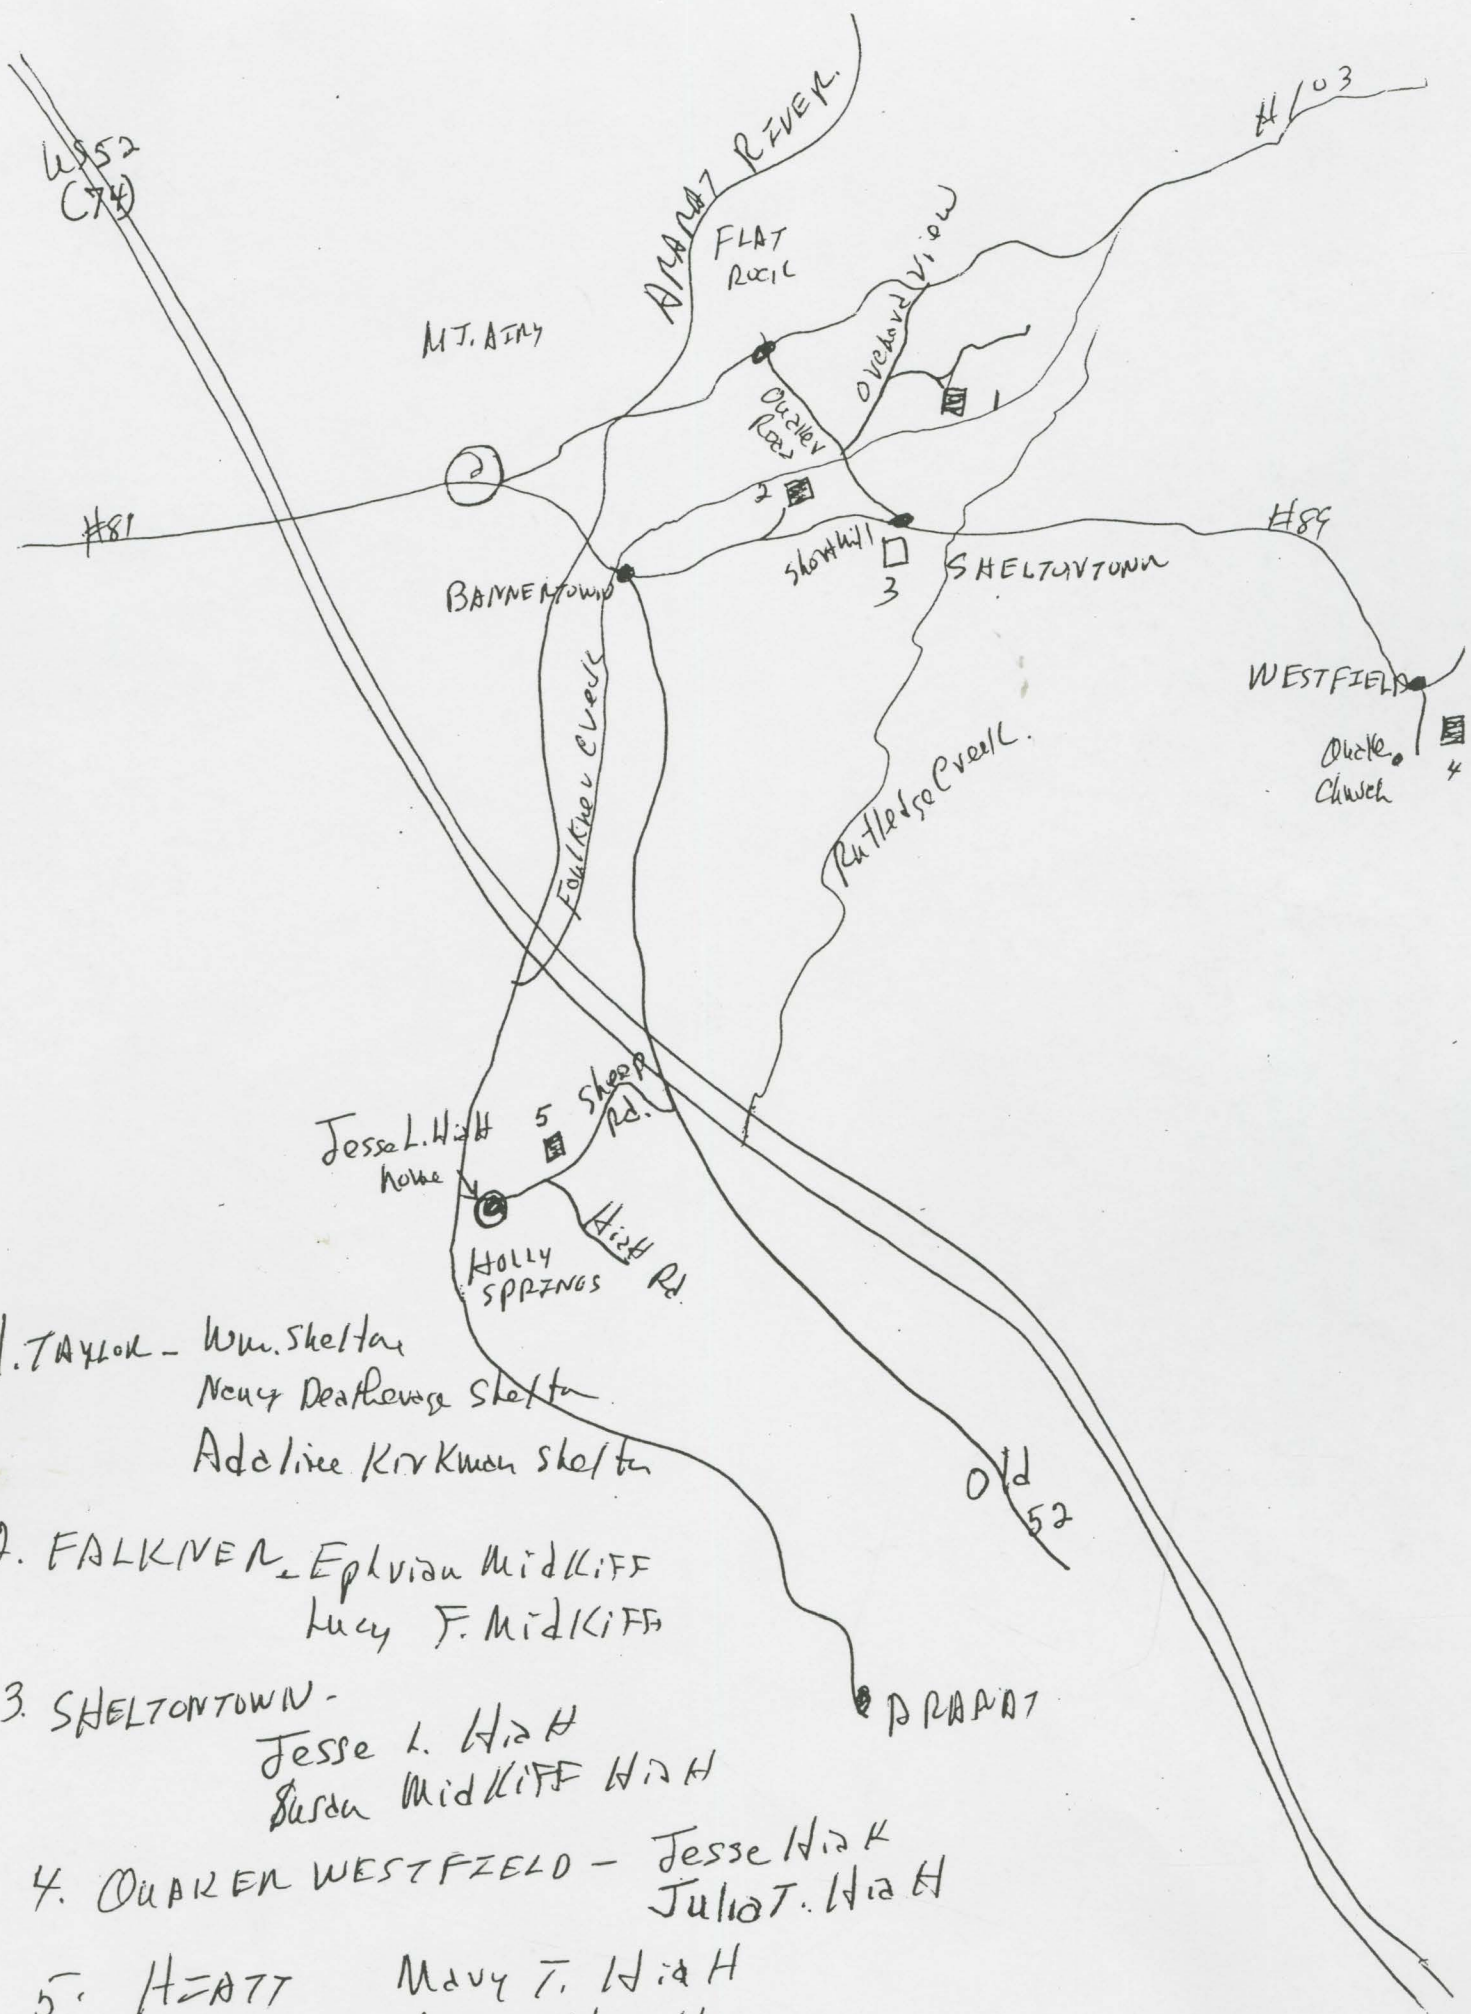 US52
(74)
ARARAT RIVER.
H103
FLAT
ROCK
Orchard View
MT. AIRY
Quaker
Road
1
2
#81
#89
Shorthill
3
SHELTONTOWN
BANNERTOWN
Faulkner Creek
WESTFIELD
Quaker
Church
4
Rutledge Creek.
5
Sheep
Rd.
Jesse L. Hiatt
home
Hiatt
Rd.
HOLLY
SPRINGS
Old
52
ARARAT
1. TAYLOR - Wm. Shelton
Nancy Deatherage Shelton
Adaline Kirkman Shelton
2. FALKNER - Ephriam Midkiff
Lucy F. Midkiff
3. SHELTONTOWN -
Jesse L. Hiatt
Susan Midkiff Hiatt
4. QUAKER WESTFIELD - Jesse Hiatt
Julia T. Hiatt
5. HIATT Mary T. Hiatt